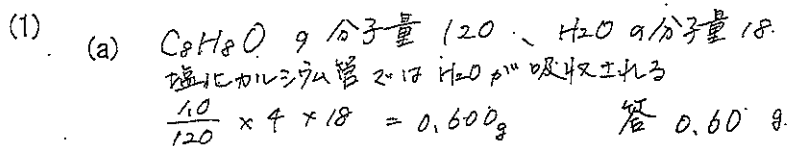 (1). (a) C8H8O の分子量 120、H2O の分子量 18.
塩化カルシウム管では H2O が吸収される
1.0/120 × 4 × 18 = 0.600g 答 0.60 g.